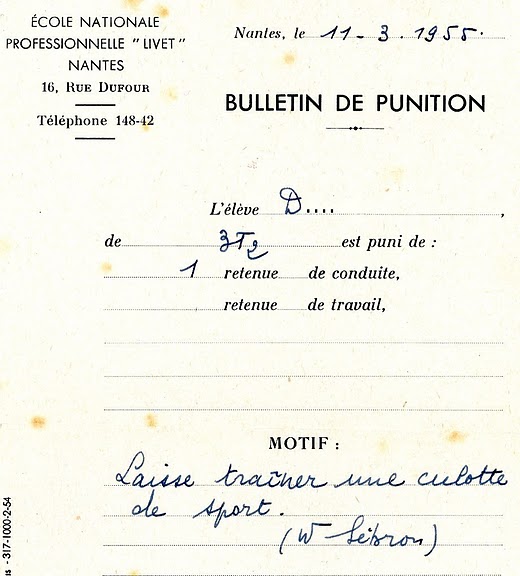 ÉCOLE NATIONALE
PROFESSIONNELLE "LIVET"
NANTES
16, RUE DUFOUR
Téléphone 148-42
Nantes, le 11-3.1955.
BULLETIN DE PUNITION
L'élève D....,
de 3T2 est puni de :
1 retenue de conduite,
retenue de travail,
MOTIF :
Laisse traîner une culotte
de sport.
(W Sébron)
s - 317-1000-2-54